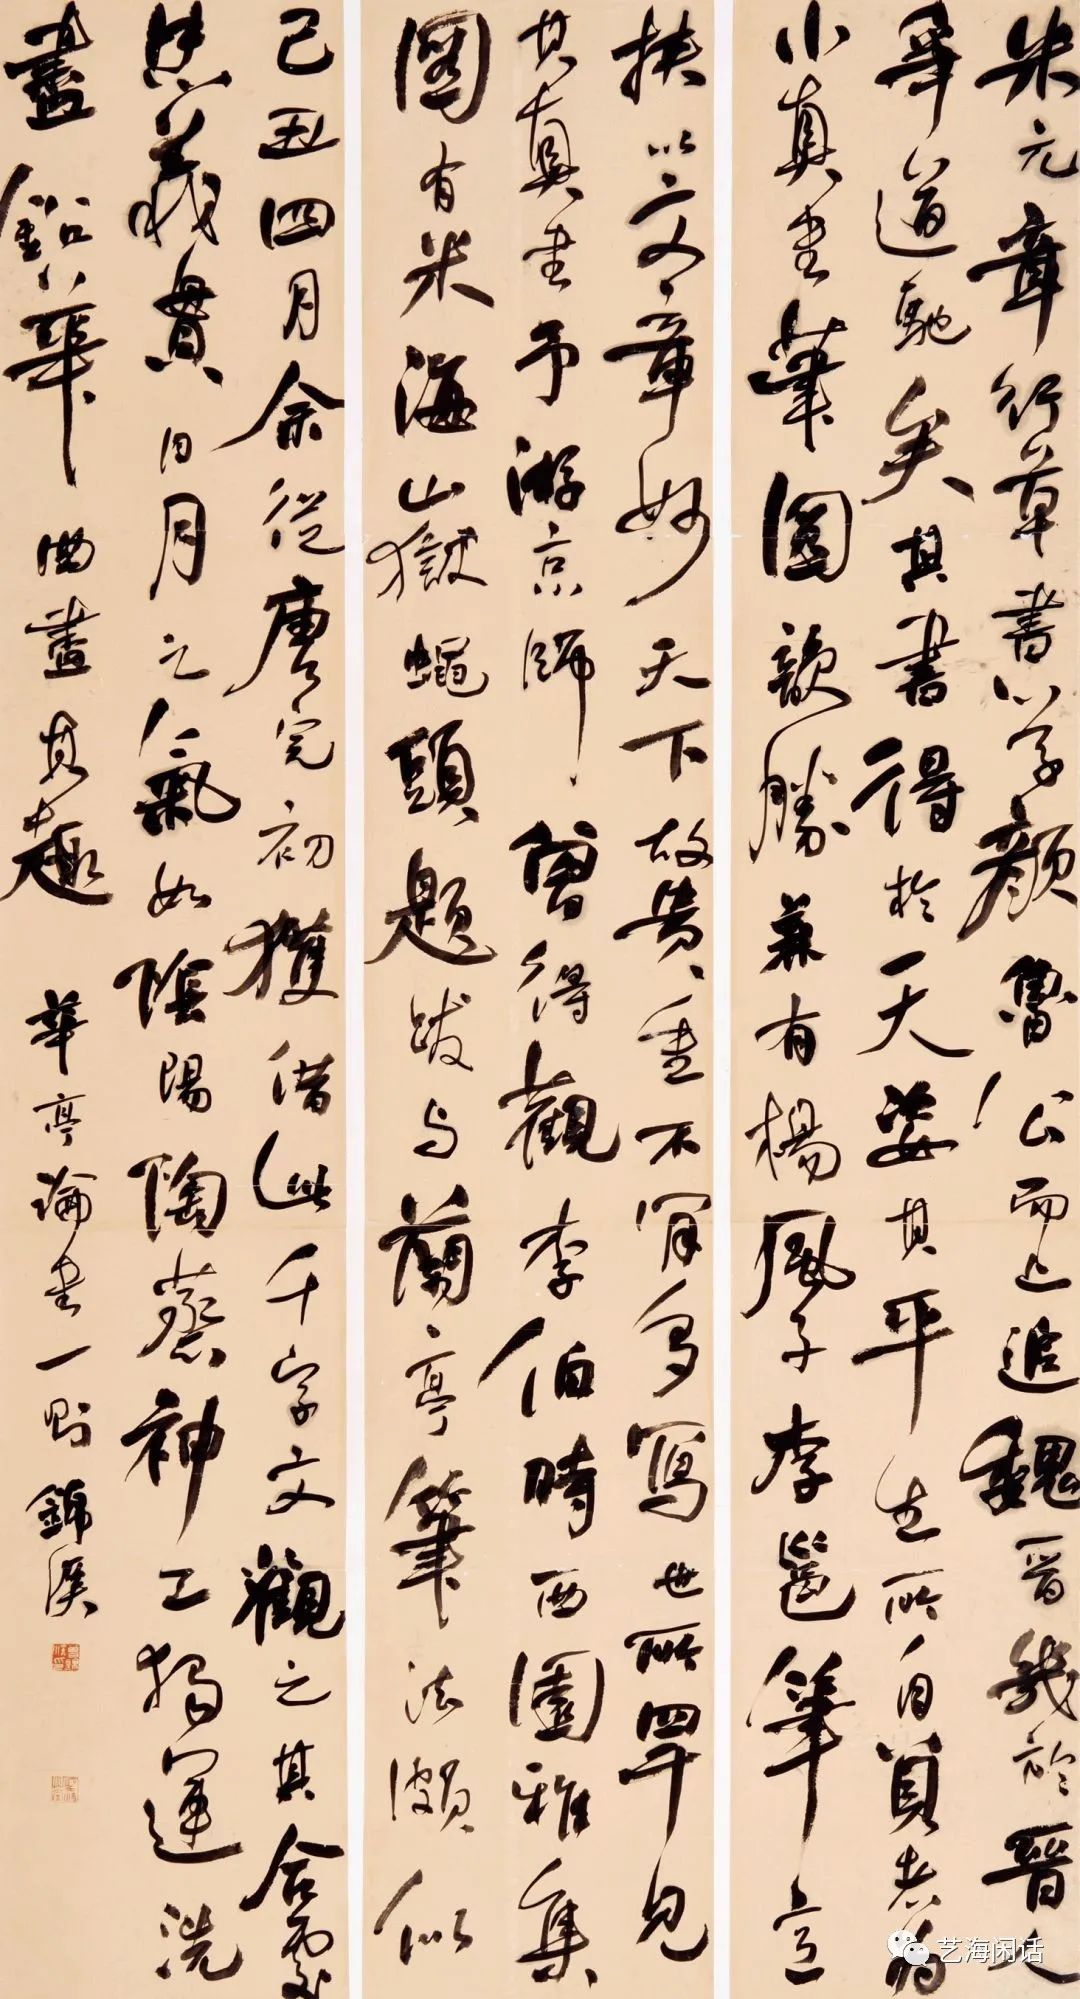 米元章行草書以學顏魯公而上追魏晉幾於晉人
筆道馳矣其書得於天姿其平生所自負者為
小真書筆圓韻勝兼有楊風子李邕筆意
扶以文章妙天下故貴重不肎多寫世所罕見
其真書予游京師曾得觀李伯時西園雅集
圖有米海山獄蠅頭題跋与蘭亭筆法頗似
己丑四月余從唐完初獲借此千字文觀之其合處
義貫日月之氣如陰陽陶蒸神工獨運洗
盡鉛華曲盡其趣 華亭論書一則 錦溪
艺海闲话